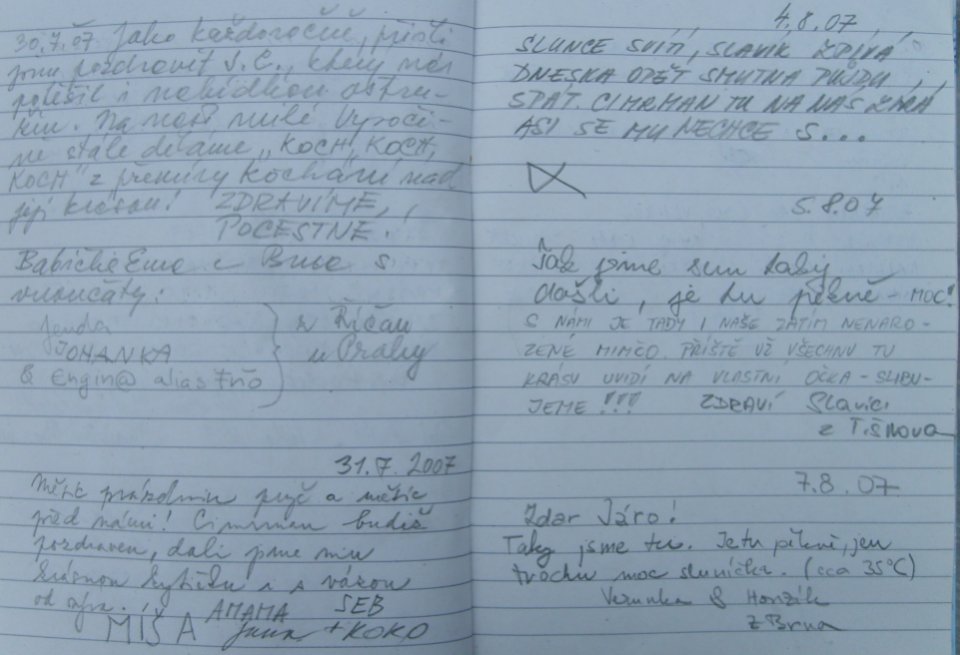 30.7.07 Jako každoročně, přišli
jsme pozdravit J.C., který nás
potěšil i nabídkou ostru-
žin. Na naší milé Vysoči-
ně stále děláme "KOCH, KOCH,
KOCH" z přemíry kochání nad
její krásou! ZDRAVÍME,
POCESTNÉ!
Babička Ema z Brna s
vnoučaty:
Jenda
JOHANKA
& Engin@ alias Fňo
z Říčan
u Prahy
31.7.2007
Měsíc prázdnin pryč a měsíc
před námi! Cimrman budiž
pozdraven, dali jsme mu
krásnou kytičku i s vázou
od
MÍŠA AMAMA SEB
Jana + KOKO
4.8.07
SLUNCE SVÍTÍ, SLAVÍK ZPÍVÁ
DNESKA OPĚT SMUTNA PUJDU
SPÁT. CIMRMAN TU NA NÁS ZÍRÁ
ASI SE MU NECHCE S...
5.8.07
Tak jsme sem taky
došli, je tu pěkně - MOC!
S NÁMI JE TADY I NAŠE ZATÍM NENARO-
ZENÉ MIMČO. PŘÍŠTĚ UŽ VŠECHNU TU
KRÁSU UVIDÍ NA VLASTNÍ OČKA - SLIBU-
JEME!!! ZDRAVÍ Slavíci
z TIŠNOVA
7.8.07
Zdar Járo!
Taky jsme tu. Je tu pěkně, jen
trochu moc sluníčka. (cca 35°C)
Verunka & Honzík
z Brna